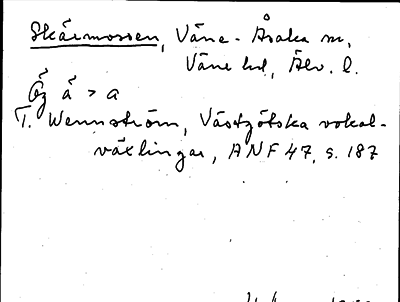 Skärmossen, Väne-Åsaka sn,
Väne hd, Älv. l.
Ög å > a
T. Wennström, Västgötska vokal-
växlingar, ANF 47, s. 187